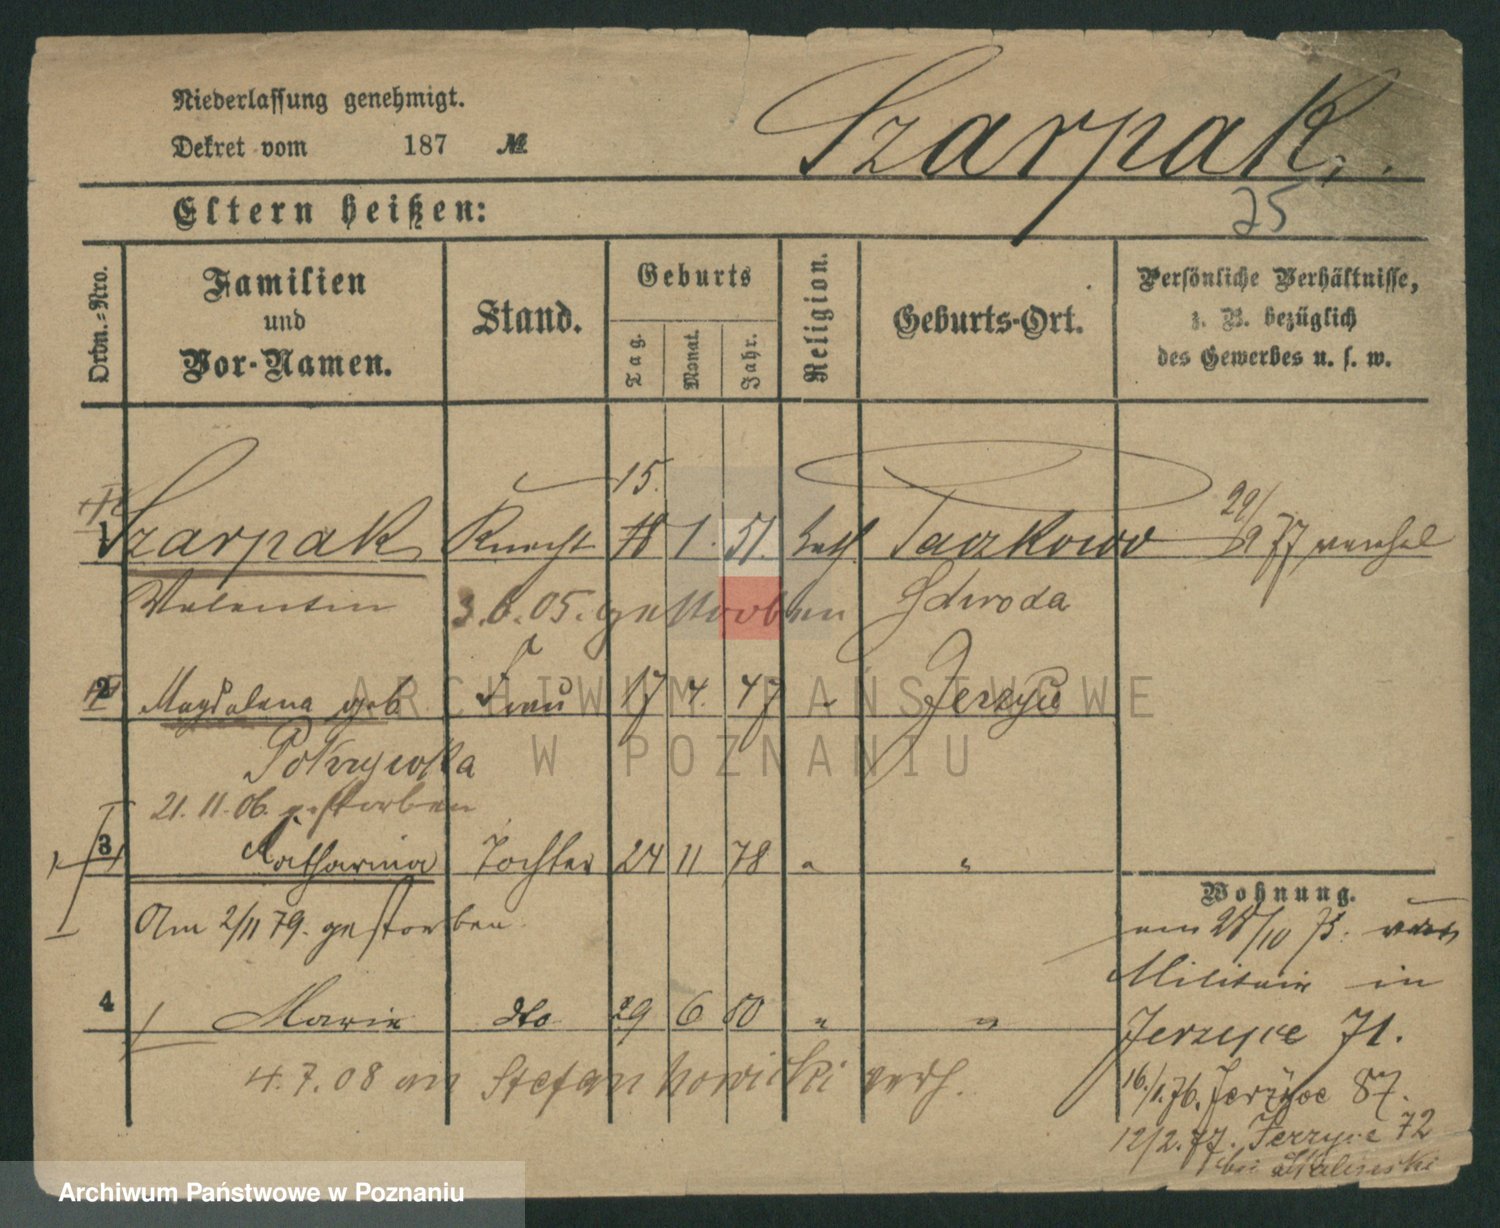 Niederlassung genehmigt.
Dekret vom 187 №
Szarpak.
25
Eltern heißen:
Ordn.-Nro.
Familien
und
Vor-Namen.
Stand.
Geburts
Tag.
Monat.
Jahr.
Religion.
Geburts-Ort.
Persönliche Verhältnisse,
z. B. bezüglich
des Gewerbes u. s. w.
15.
1 Szarpak Knecht 18 1. 51. kath Taczkowo 29/9 77
Valentin Schroda
3.6.05. gestorben
2 Magdalena geb Frau 17 4. 47 " Jerzyce
Pokrzywka
21.11.06. gestorben
3 Katharina Tochter 24 11 78 " "
Am 2/11 79. gestorben
4 Marie dto 29 6 80 " "
4.7.08 an Stefan Nowicki verh.
Wohnung.
am 28/10 75. vom
Militair in
Jerzyce 71.
16./1.76. Jerzyce 87.
12/2.77. Jerzyce 72
bei
ARCHIWUM PAŃSTWOWE
W POZNANIU
Archiwum Państwowe w Poznaniu